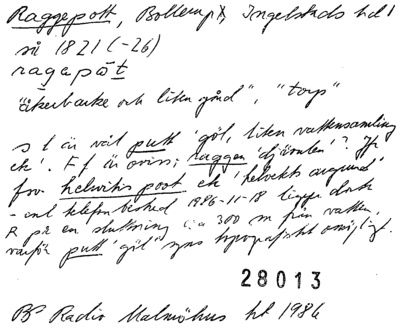 Raggepott, Bollerup, Ingelstads hd 1
så 1821 (-26)
ragapåt
"åkerbacke och liten gård", "torp"
s l är väl putt 'göl, liten vattensamling
ek'. F l är oviss; raggen 'djävulen'? Jfr
fsv helvitis pott ek 'helvets avgrund'
- enl telefonbesked 1986-11-18 ligger dock
R på en sluttning ca 300 m från vatten,
varför putt 'göl' syns topografiskt omöjligt.
28013
BP Radio Malmöhus ht 1986